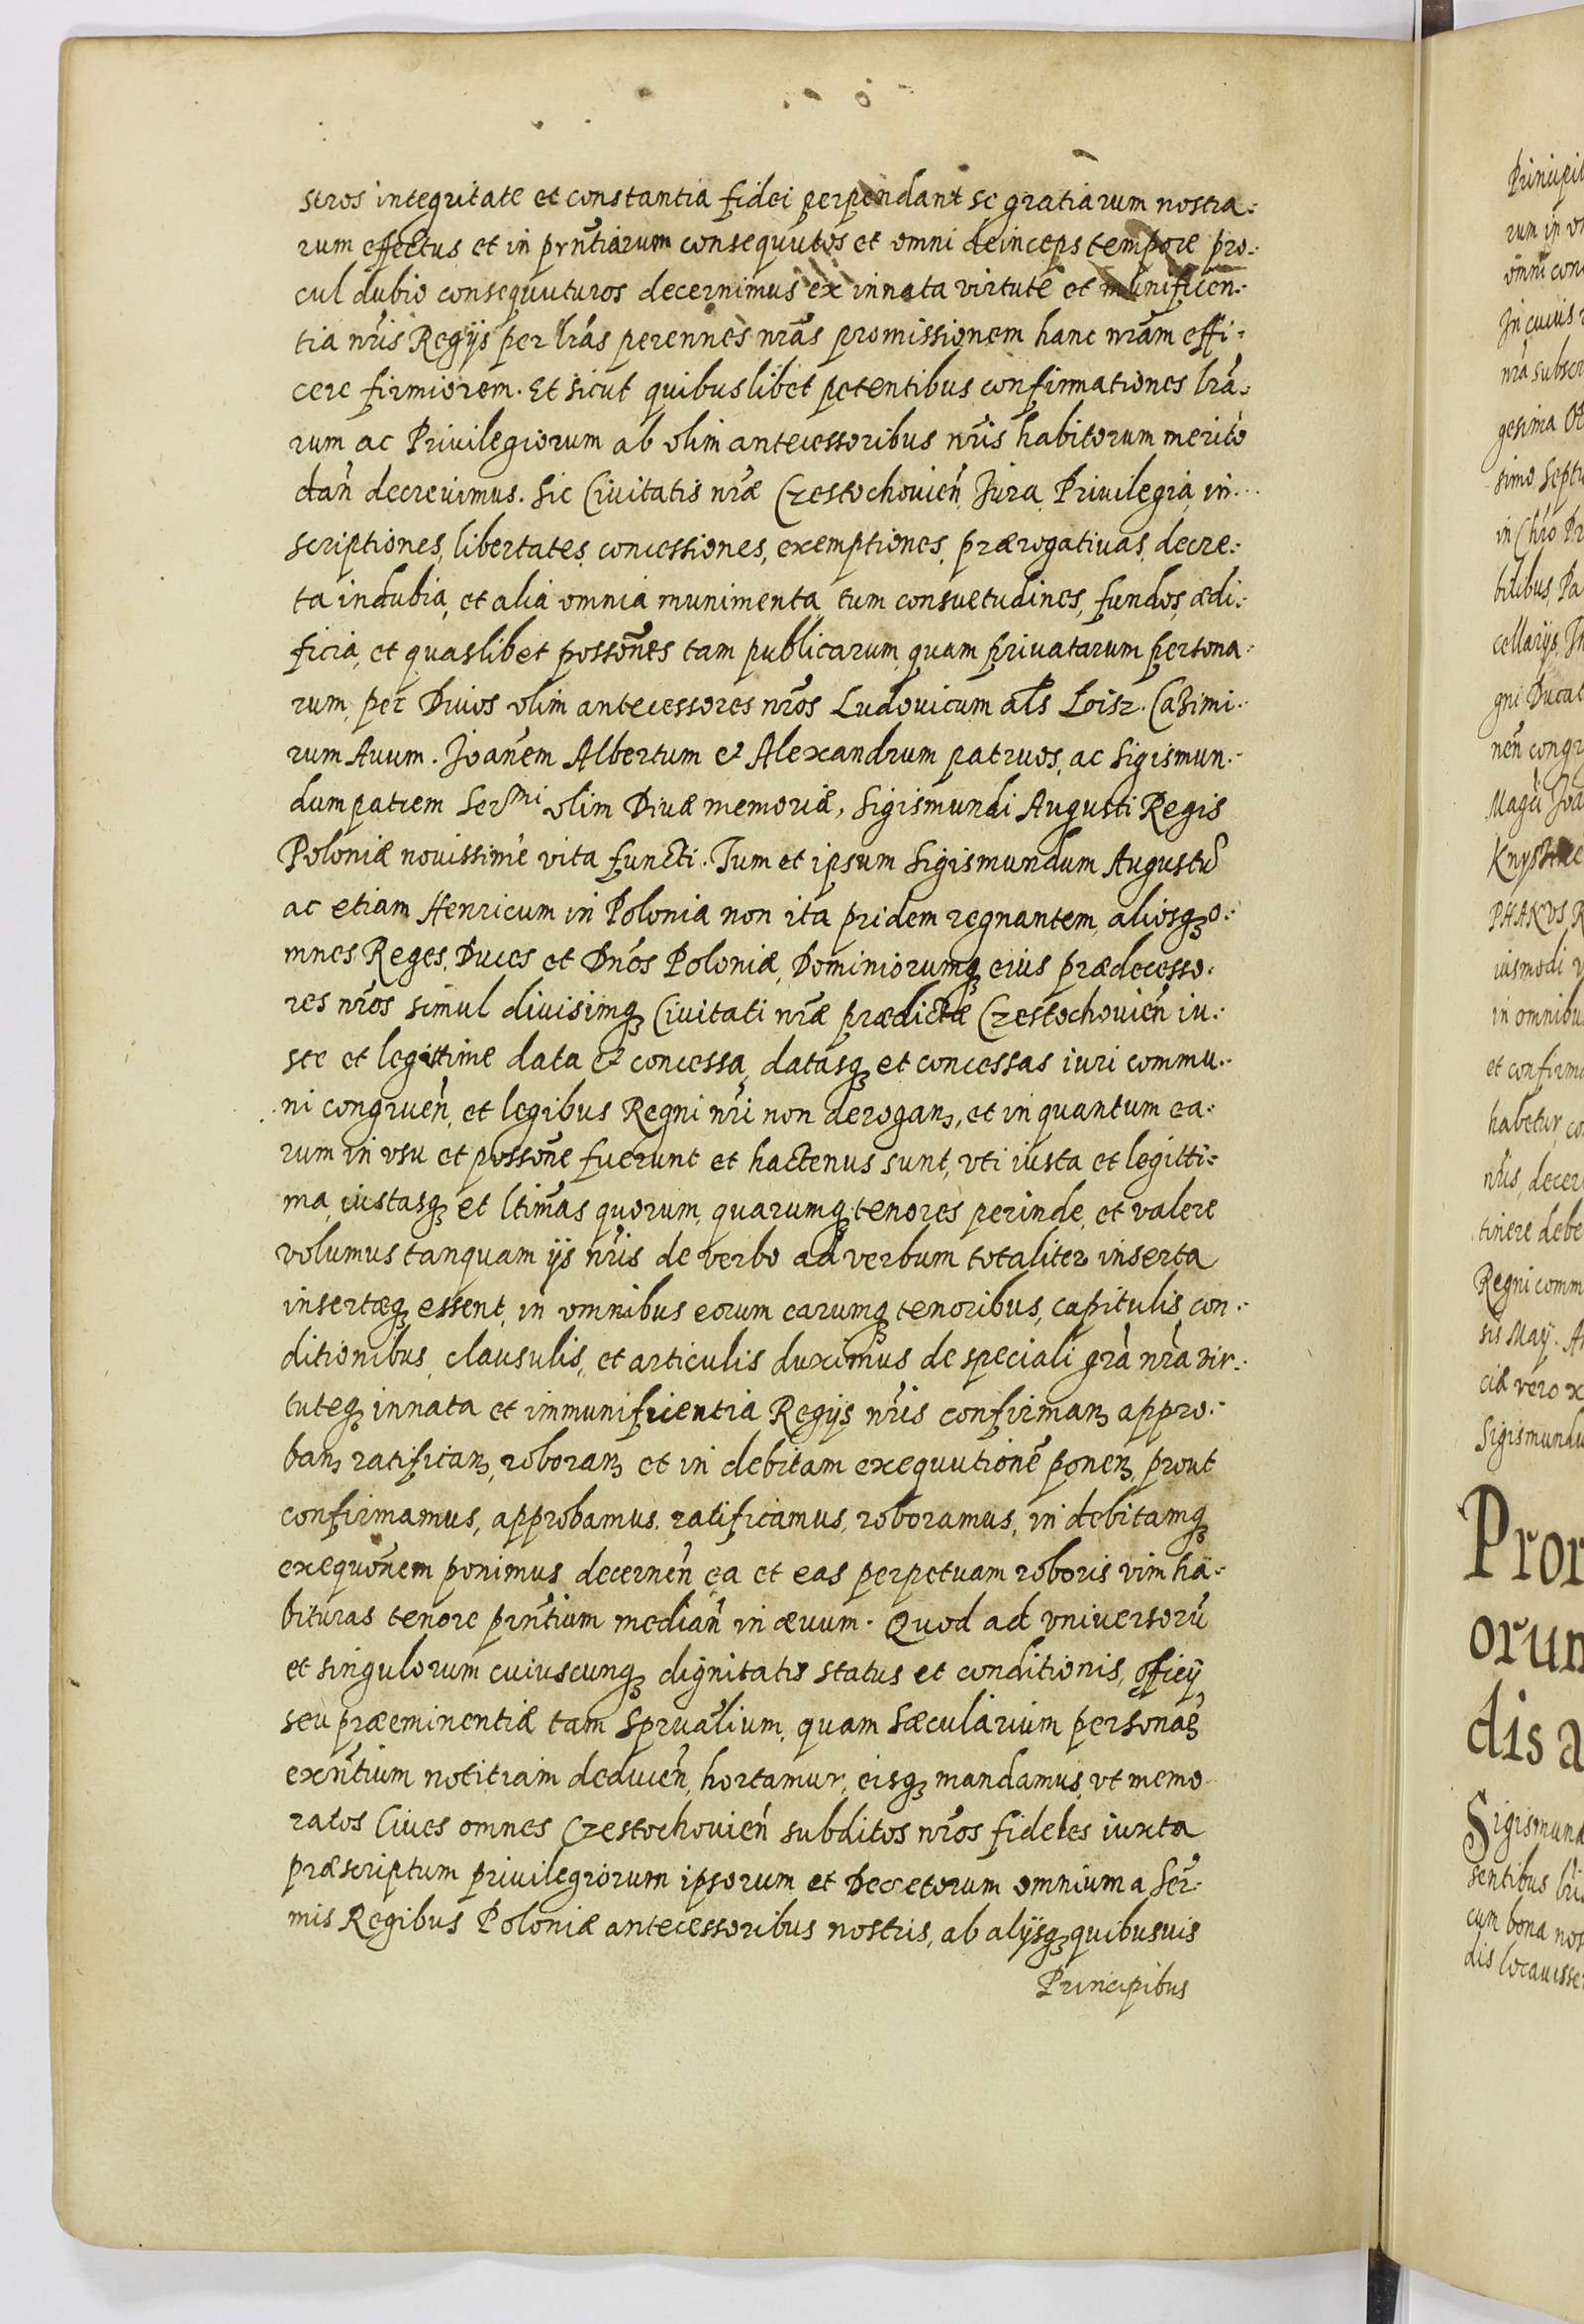 stros integritate et constantia fidei perpendant se gratiarum nostra:
rum effectus et in prñtiarum consequutos et omni deinceps tempore pro:
cul dubio consequuturos decernimus ex innata virtute et munificen:
tia nr̃is Regijs per lr̃as perennes nr̃as promissionem hanc nr̃am effi:
cere firmiorem. Et sicut quibuslibet petentibus confirmationes lr̃a:
rum ac Privilegiorum ab olim antecessoribus nr̃is habitorum merito
dañ decrevimus. Sic Civitatis nr̃æ Czestochovieñ Jura, Privilegia, in:
scriptiones, libertates, concessiones, exemptiones, prærogativas, decre:
ta indubia, et alia omnia munimenta, tum consuetudines, fundos, ædi:
ficia, et quaslibet possoñes tam publicarum, quam privatarum persona:
rum, per Divos olim antecessores nr̃os Ludovicum als Loisz. Cazimi:
rum Avum. Joañem Albertum et Alexandrum patruos, ac Sigismun:
dum patrem Serᵐⁱ olim Divæ memoriæ, Sigismundi Augusti Regis
Poloniæ novissime vita functi. Tum et ipsum Sigismundum Augustũ
ac etiam Henricum in Polonia non ita pridem regnantem, aliosqꝫ o:
mnes Reges, Duces et Dños Poloniæ, Dominiorumqꝫ eius prædecesso:
res nr̃os simul divisimqꝫ Civitati nr̃æ prædictæ Czestochovieñ iu:
ste et legittime data et concessa, datasqꝫ et concessas iuri commu:
ni congrueñ, et legibus Regni nr̃i non deroganꝫ, et in quantum ea:
rum in usu et possoñe fuerunt et hactenus sunt, vti iusta et legitti:
ma, iustasqꝫ et ltim̃as quorum, quarumqꝫ tenores perinde, et valere
volumus tanquam ijs nr̃is de verbo ad verbum totaliter inserta
insertæqꝫ essent, in omnibus eorum earumqꝫ tenoribus, capitulis, con:
ditionibus, clausulis, et articulis duximus de speciali gr̃a nr̃a vir:
tuteqꝫ innata et immunificentia Regijs nr̃is confirmanꝫ appro:
banꝫ ratificanꝫ, roboranꝫ et in debitam exequutionẽ ponenꝫ, prout
confirmamus, approbamus, ratificamus, roboramus, in debitamqꝫ
exequoñem ponimus decerneñ ea et eas perpetuam roboris vim ha:
bituras tenore prñtium mediañ in ævum. Quod ad vniversorũ
et singulorum cuiuscunqꝫ dignitatis status et conditionis, officij
seu præeminentiæ tam sprualium, quam sæcularium personaꝝ
exñtium notitiam deduceñ, hortamur, eisqꝫ mandamus, vt memo
ratos Cives omnes Czestochovieñ subditos nr̃os fideles iuxta
præscriptum privilegiorum ipsorum et Decretorum omnium a Ser:
mis Regibus Poloniæ antecessoribus nostris, ab alijsqꝫ quibusvis
Principibus
Principib
rum in
omni con
In cuius
nr̃a subscr
gesima
simo Septu
in Chr̃o
bilibus, Pa
cellarijs,
gni Ducat
neñ congr
Joa
Knysz
uismodi
in omnibu
et confirma
habetur, co
nr̃is, decer
tinere debe
Regni comm
sis Maij.
ciæ vero
Sigismundu
Pror
orum
dis a
Sigismund
sentibus
cum bona nos
dis locavisse